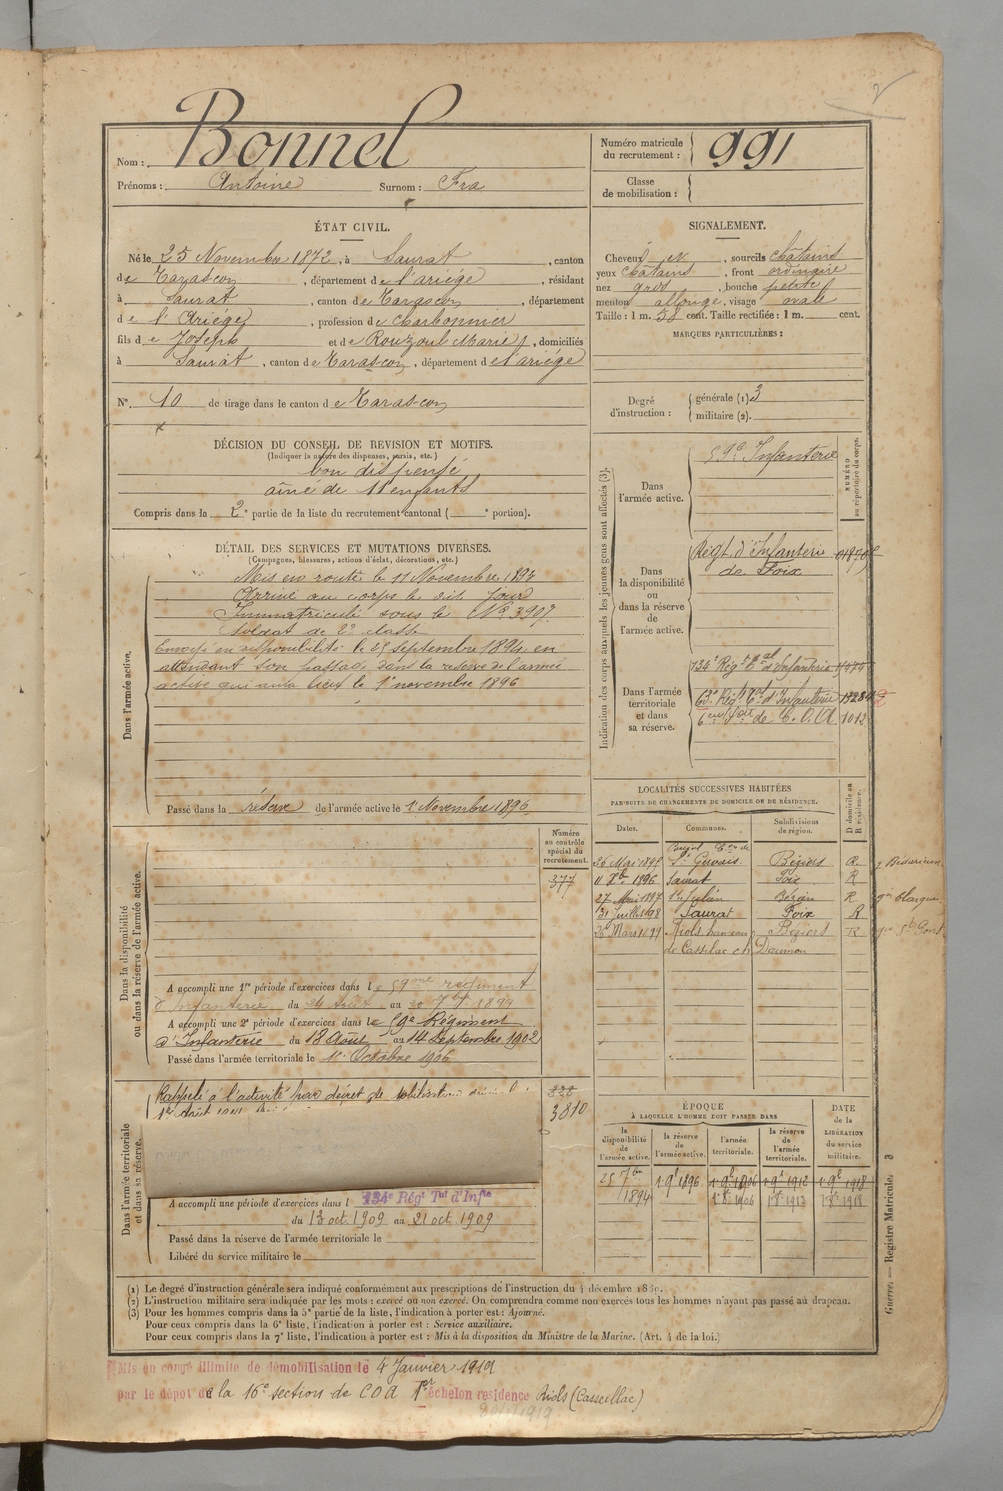 2
Nom : Bonnel
Prénoms : Antoine Surnom : Fra
Numéro matricule du recrutement : 991
Classe de mobilisation :
ÉTAT CIVIL.
Né le 25 Novembre 1872, à Saurat, canton
de Tarascon, département de l'ariége, résidant
à Saurat, canton de Tarascon, département
de l'Ariége, profession de charbonnier
fils de Joseph et de Rouzoul Marie, domiciliés
à Saurat, canton de Tarascon, département de l'ariége
N° 10 de tirage dans le canton de Tarascon
DÉCISION DU CONSEIL DE REVISION ET MOTIFS.
(Indiquer la nature des dispenses, sursis, etc.)
bon dispensé
aîné de 11 enfants
Compris dans la 2e partie de la liste du recrutement cantonal ( e portion).
SIGNALEMENT.
Cheveux N, sourcils châtains
yeux châtains, front ordinaire
nez gros, bouche petite
menton allongé, visage ovale
Taille : 1 m. 58 cent. Taille rectifiée : 1 m. cent.
MARQUES PARTICULIÈRES :
Degré d'instruction :
générale (1) 3
militaire (2).
DÉTAIL DES SERVICES ET MUTATIONS DIVERSES.
(Campagnes, blessures, actions d'éclat, décorations, etc.)
Dans l'armée active.
Mis en route le 11 Novembre 1893
Arrivé au corps le dit jour
Immatriculé sous le No 3907
Soldat de 2e classe
Envoyé en disponibilité le 25 septembre 1894 en
attendant son passage dans la réserve de l'armée
active qui aura lieu le 1er novembre 1896
Passé dans la réserve de l'armée active le 1 Novembre 1896
Indication des corps auxquels les jeunes gens sont affectés (3).
NUMÉRO au répertoire du corps.
Dans l'armée active.
59e Infanterie
Dans la disponibilité ou dans la réserve de l'armée active.
Régt. d'Infanterie
de Foix
Dans l'armée territoriale et dans sa réserve.
134e Régt Tal d'Infanterie
63e Régt Tal d'Infanterie
de C. O. A. 1012
LOCALITÉS SUCCESSIVES HABITÉES
PAR SUITE DE CHANGEMENTS DE DOMICILE OU DE RÉSIDENCE.
Dates. Communes. Subdivisions de région. D domicile ou R résidence.
St Gervais Béziers R.
11 Xbre 1896 Saurat Foix R
27 Mai 1897 Béziers R
31 juillet 98 Saurat Foix R
26 Mars 1899 Riols Béziers R
Numéro au contrôle spécial du recrutement.
377
Dans la disponibilité ou dans la réserve de l'armée active.
A accompli une 1re période d'exercices dans le 59me régiment
d'Infanterie du 24 août au 20 7bre 1899
A accompli une 2e période d'exercices dans le 59e Régiment
d'Infanterie du 18 Août au 14 Septembre 1902
Passé dans l'armée territoriale le 1er Octobre 1906
Dans l'armée territoriale et dans sa réserve.
Rappelé à l'activité par décret de mobilisation
328
3810
A accompli une période d'exercices dans l 134e Régt Tal d'Infie
du 13 oct. 1909 au 21 oct 1909
Passé dans la réserve de l'armée territoriale le
Libéré du service militaire le
ÉPOQUE
À LAQUELLE L'HOMME DOIT PASSER DANS
la disponibilité de l'armée active. la réserve de l'armée active. l'armée territoriale. la réserve de l'armée territoriale. DATE de la LIBÉRATION du service militaire.
25 7bre 1894 1 9b 1896 1 9b 1906 1 9b 1912 1 9b 1918
1 8b 1906 1 8b 1912 1 8b 1918
Guerre. — Registre Matricule.
(1) Le degré d'instruction générale sera indiqué conformément aux prescriptions de l'instruction du 4 décembre 1889.
(2) L'instruction militaire sera indiquée par les mots : exercé ou non exercé. On comprendra comme non exercés tous les hommes n'ayant pas passé au drapeau.
(3) Pour les hommes compris dans la 5e partie de la liste, l'indication à porter est : Ajourné.
Pour ceux compris dans la 6e liste, l'indication à porter est : Service auxiliaire.
Pour ceux compris dans la 7e liste, l'indication à porter est : Mis à la disposition du Ministre de la Marine. (Art. 4 de la loi.)
Mis en congé illimité de démobilisation le 4 Janvier 1919
par le dépôt de la 16e section de COA 1er échelon residence Riols (Casseillac)